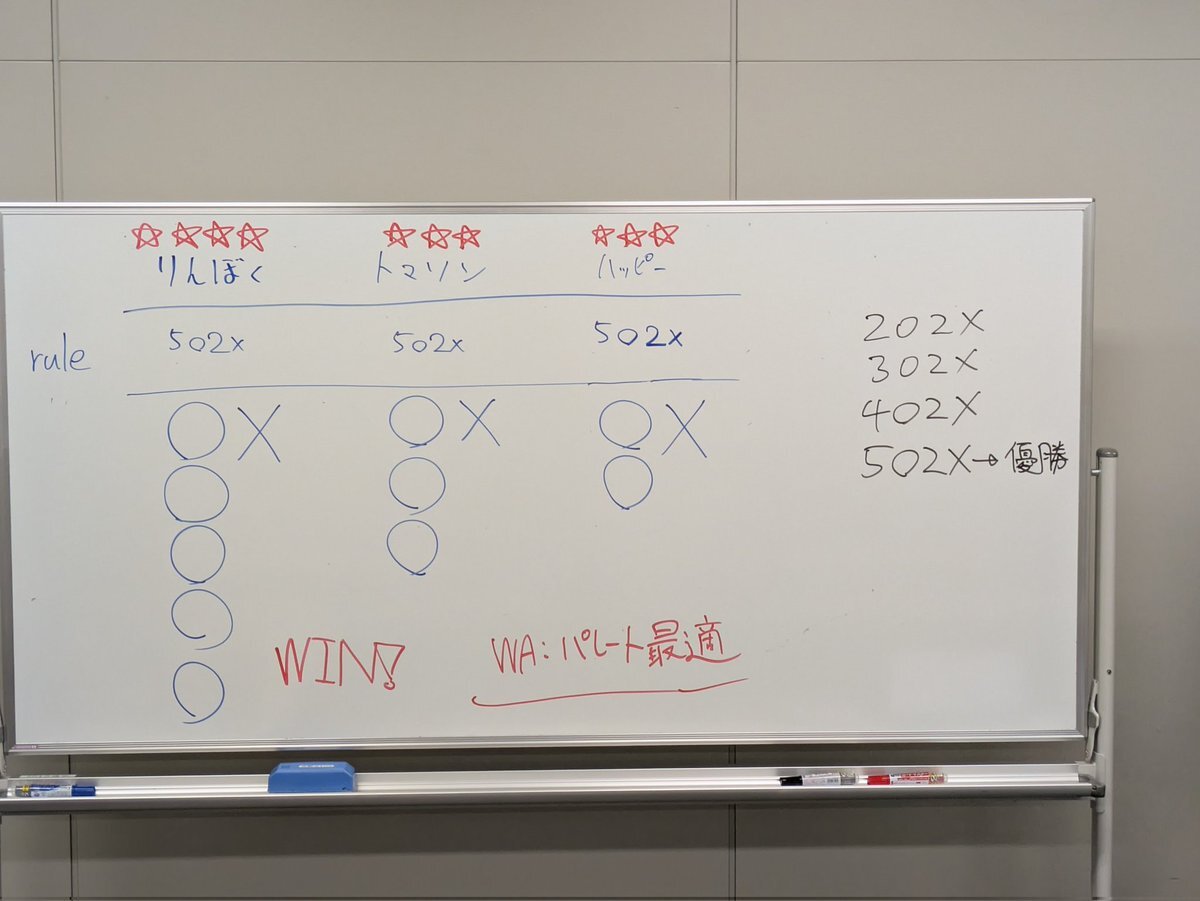 ☆☆☆☆ ☆☆☆ ☆☆☆
りんぼく トマソン ハッピー
rule 502x 502x 502x
○× ○× ○×
○ ○ ○
○ ○
○
○
WIN! WA:パレート最適
202X
302X
402X
502X→優勝